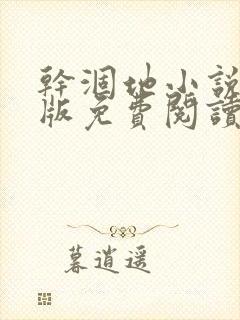 幹涸地小說
版免費閱讀
暮逍遥